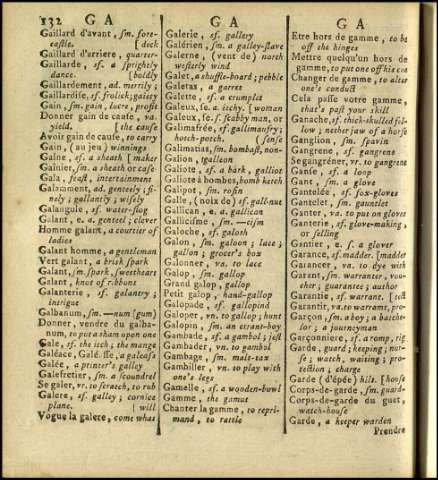 132 G A
G A
G A
Gaillard d'avant, sm. fore-
castle. [deck
Gaillard d'arriere, quarter-
Gaillarde, sf. a sprightly
dance. [boldly
Gaillardement, ad. merrily;
Gaillardise, sf. frolick; gaiety
Gain, sm. gain, lucre, profit
Donner gain de cause, va.
yield, [the cause
Avoir gain de cause, to carry
Gain, (au jeu) winnings
Gaîne, sf. a sheath [maker
Gaînier, sm. a sheath or case
Gala, feast, intertainment
Galamment, ad. genteely; fi-
nely; gallantly; wisely
Galangule, sf. water-flag
Galant, e. a. genteel; clever
Homme galant, a courtier of
ladies
Galant homme, a gentleman
Vert galant, a brisk spark
Galant, sm. spark, sweetheart
Galant, knot of ribbons
Galanterie, sf. galantry;
intrigue
Galbanum, sm. —num [gum)
Donner, vendre du galba-
num, to put a sham upon one
Gale, sf. the itch; the mange
Galéace, Galé. sse, a galeass
Galée, a printer's galley
Galefretier, sm. a scoundrel
Se galer, vr. to scratch, to rub
Galere, sf. galley; cornice
plane. [will
Vogue la galere, come what
Galerie, sf. gallery
Galérien, sm. a galley-slave
Galerne, (vent de) north
westerly wind
Galet, a shuffle-board; pebble
Galetas, a garret
Galette, sf. a crumplet
Galeux, se. a. itchy; [woman
Galeux, se. s. scabby man, or
Galimafrée, sf. gallimaufry;
hotch-potch. [sense
Galimatias, sm. bombast, non-
Galion, galleon
Galiote, sf. a bark, galliot
Galiote à bombes, bomb ketch
Galipot, sm. rosin
Galle, (noix de) sf. gall-nut
Gallican, e. a. gallican
Gallicisme, sm. —cism
Galoche, sf. galosh
Galon, sm. galoon; lace;
gallon; grocer's box
Galonner, va. to lace
Galop, sm. gallop
Grand galop, gallop
Petit galop, hand-gallop
Galopade, sf. gallopind
Galoper, vn. to gallop; hunt
Galopin, sm. an errant-boy
Gambade, sf. a gambol; jest
Gambader, vn. to gambol
Gambage, sm. malt-tax
Gambiller, vn. to play with
one's legs
Gamelle, sf. a wooden-bowl
Gamme, the gamut
Chanter la gamme, to repri-
mand, to rattle
Etre hors de gamme, to be
off the hinges
Mettre quelqu'un hors de
gamme, to put one off his
Changer de gamme, to alter
one's conduct
Cela passe votre gamme,
that's past your skill
Ganache, sf. thick-skulled fel-
low; nether jaw of a horse
Ganglion, sm. spavin
Gangrene, sf. gangrene
Segangréner, vr. to gangrene
Ganse, sf. a loop
Gant, sm. a glove
Gantelée, sf. fox-gloves
Gantelet, sm. gauntlet
Ganter, va. to put on gloves
Ganterie, sf. glove-making
or selling
Gantier, e. s. a glover
Garance, sf. madder. [madder
Garancer, va. to dye with
Garant, sm. warrenter, vou-
cher; guarantee; author
Garantie, sf. warrant. [tect
Garantir, va. to warrant, pro-
Garçon, sm. a boy; a batche-
lor; a journeyman
Garçonniere, sf. a romp, rig
Garde, guard; keeping; nur-
se; watch, waiting; pro-
tection; charge
Garde (d'épée) hilt. [house
Corps-de-garde, sm. guard-
Corps-de-garde du guet,
watch-house
Garde, a keeper warden
Prendre